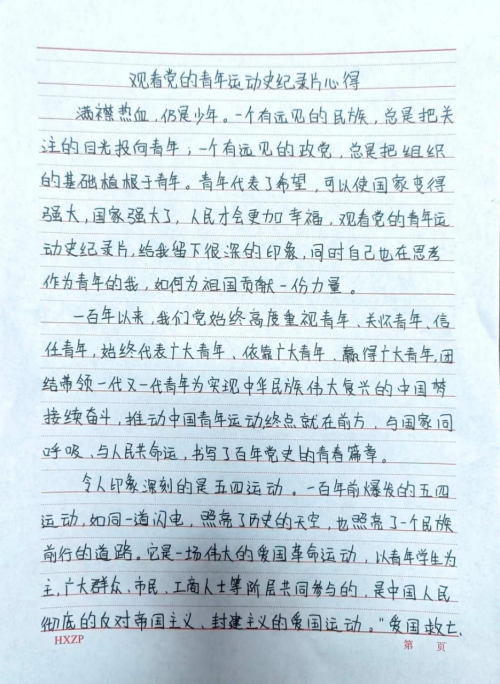 观看党的青年运动史纪录片心得
满襟热血，仍是少年。一个有远见的民族，总是把关
注的目光投向青年；一个有远见的政党，总是把组织
的基础植根于青年。青年代表了希望，可以使国家变得
强大，国家强大了，人民才会更加幸福，观看党的青年运
动史纪录片，给我留下很深的印象，同时自己也在思考
作为青年的我，如何为祖国贡献一份力量。
一百年以来，我们党始终高度重视青年、关怀青年、信
任青年，始终代表广大青年、依靠广大青年、赢得广大青年，团
结带领一代又一代青年为实现中华民族伟大复兴的中国梦
接续奋斗，推动中国青年运动终点就在前方，与国家同
呼吸、与人民共命运，书写了百年党史的青春篇章。
令人印象深刻的是五四运动。一百年前爆发的五四
运动，如同一道闪电，照亮了历史的天空，也照亮了一个民族
前行的道路。它是一场伟大的爱国革命运动，以青年学生为
主，广大群众、市民、工商人士等阶层共同参与的，是中国人民
彻底的反对帝国主义、封建主义的爱国运动。“爱国救亡、
HXZP 第 页